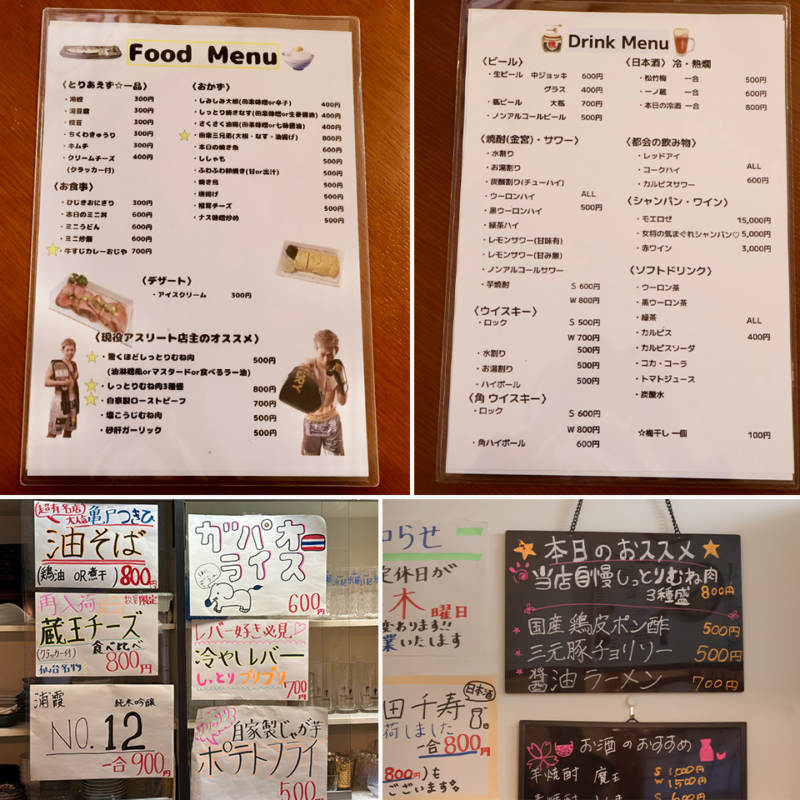 Food Menu
〈とりあえず☆一品〉
・冷奴 300円
・湯豆腐 300円
・枝豆 300円
・ちくわきゅうり 300円
・キムチ 300円
・クリームチーズ 400円
(クラッカー付)
〈お食事〉
・ひじきおにぎり 300円
・本日のミニ丼 600円
・ミニうどん 600円
・ミニ炒飯 600円
・牛すじカレーおじや 700円
〈おかず〉
・しみしみ大根(田楽味噌or辛子) 400円
・しっとり焼きなす(田楽味噌or生姜醤油) 400円
・さくさく油揚(田楽味噌or七味醤油) 400円
・田楽三兄弟(大根・なす・油揚げ) 800円
・本日の焼き魚 600円
・ししゃも 500円
・ふわふわ卵焼き(甘or出汁) 500円
・焼き鳥 500円
・唐揚げ 500円
・椎茸チーズ 500円
・ナス味噌炒め 500円
〈デザート〉
・アイスクリーム 300円
〈現役アスリート店主のオススメ〉
・驚くほどしっとりむね肉 500円
(油淋鶏風orマスタードor食べるラー油)
・しっとりむね肉3種盛 800円
・自家製ローストビーフ 700円
・塩こうじむね肉 500円
・砂肝ガーリック 500円
Drink Menu
〈ビール〉
・生ビール 中ジョッキ 600円
グラス 400円
・瓶ビール 大瓶 700円
・ノンアルコールビール 500円
〈焼酎(金宮)・サワー〉
・水割り
・お湯割り
・炭酸割り(チューハイ)
・ウーロンハイ ALL
・黒ウーロンハイ 500円
・緑茶ハイ
・レモンサワー(甘味有)
・レモンサワー(甘み無)
・ノンアルコールサワー
・芋焼酎 S 600円
W 800円
〈ウイスキー〉
・ロック S 500円
W 700円
・水割り 500円
・お湯割り 500円
・ハイボール 500円
〈角 ウイスキー〉
・ロック S 600円
W 800円
・角ハイボール 600円
〈日本酒〉 冷・熱燗
・松竹梅 一合 500円
・一ノ蔵 一合 600円
・本日の冷酒 一合 800円
〈都会の飲み物〉
・レッドアイ
・コークハイ ALL
・カルピスサワー 600円
〈シャンパン・ワイン〉
・モエロゼ 15,000円
・女将の気まぐれシャンパン♡ 5,000円
・赤ワイン 3,000円
〈ソフトドリンク〉
・ウーロン茶
・黒ウーロン茶
・緑茶 ALL
・カルピス 400円
・カルピスソーダ
・コカ・コーラ
・トマトジュース
・炭酸水
☆梅干し 一個 100円
超有名店
大盛 亀戸つきひ
油そば
(鶏油 OR 煮干) 800円
再入荷 数量限定
蔵王チーズ
(クラッカー付) 食べ比べ
仙台名物 800円
浦霞 純米吟醸
NO. 12
一合 900円
ガパオ
ライス
600円
レバー好き必見
冷やしレバー
しっとりプリプリ
700円
自家製じゃが芋
ポテトフライ
500円
らせ
定休日が
木曜日
変わります!!
業いたします
日本酒
田 千寿
荷しました
一合 800円
800円)も
ございます。
本日のおススメ
当店自慢しっとりむね肉
3種盛 800円
国産鶏皮ポン酢 500円
三元豚チョリソー 500円
醤油ラーメン 700円
お酒のおすすめ
芋焼酎 魔王 S 1,000円
W 1,500円
S 600円